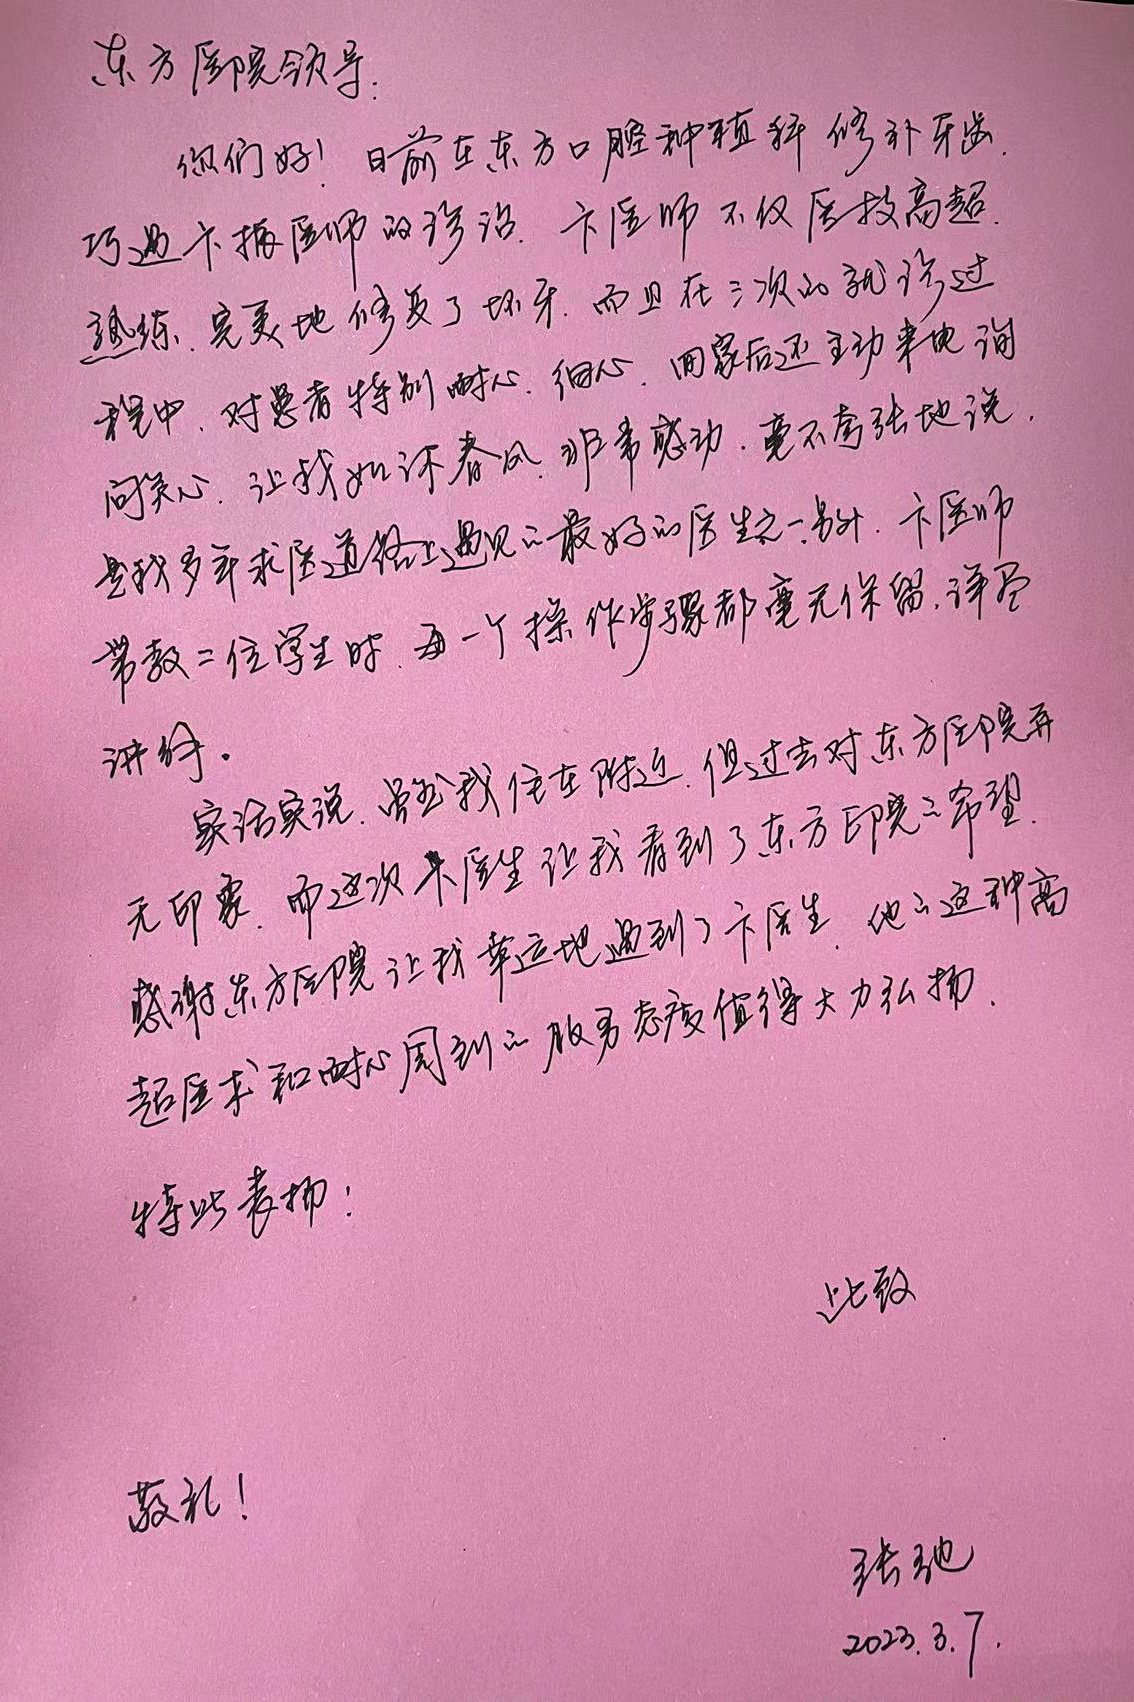 东方医院领导:
你们好！日前在东方口腔种植科修补牙齿.
巧遇卞振医师的诊治.卞医师不仅医技高超.
熟练、完美地修复了坏牙.而且在三次的就诊过
程中、对患者特别耐心、细心、回家后还主动来电询
问关心、让我如沐春风、非常感动.毫不夸张地说.
是我多年求医道路上遇见的最好的医生之一.另外、卞医师
带教二位学生时、每一个操作步骤都毫无保留、详尽
讲解。
实话实说、虽然我住在附近、但过去对东方医院并
无印象、而这次卞医生让我看到了东方医院的希望.
感谢东方医院让我幸运地遇到了卞医生、他的这种高
超医术和耐心周到的服务态度值得大力弘扬.
特此表扬！
此致
敬礼！
张
2023.3.7.